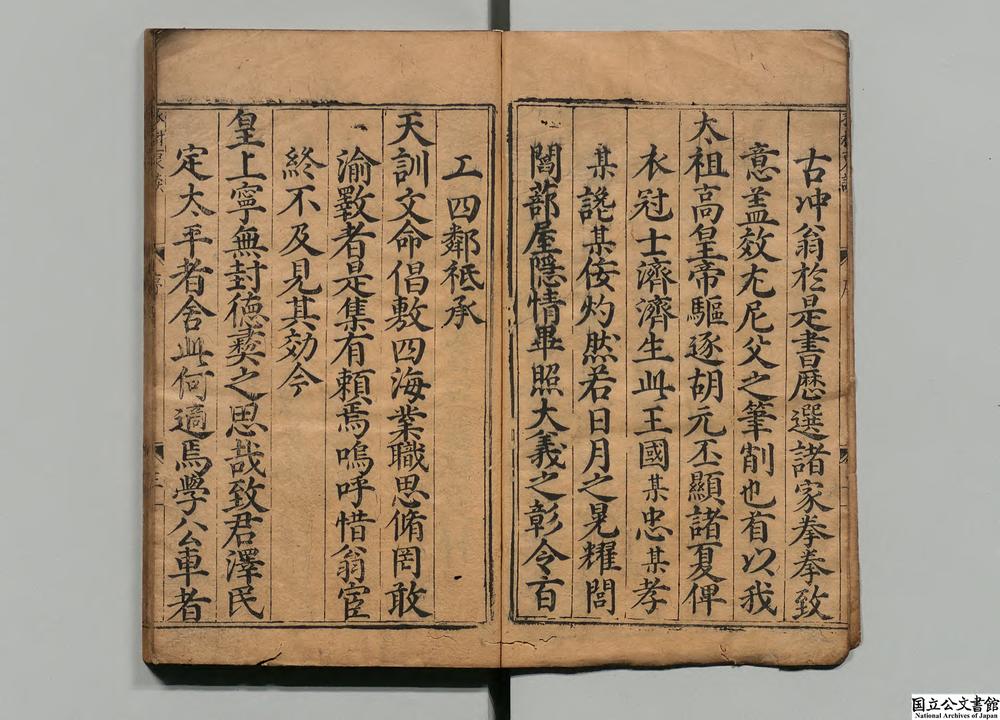 古冲翁於是書歷選諸家拳拳致
意蓋效尤尼父之筆削也有以我
太祖高皇帝驅逐胡元丕顯諸夏俾
衣冠士濟濟生此王國某忠某孝
某讒某佞灼然若日月之晃耀閭
閻蔀屋隱情畢照大義之彰令百
工四鄰祗承
天訓文命倡敷四海業職思脩罔敢
渝斁者是集有賴焉嗚呼惜翁宦
終不及見其効今
皇上寧無封德彝之思哉致君澤民
定太平者舍此何適焉學公車者
序
三
国立公文書館
National Archives of Japan